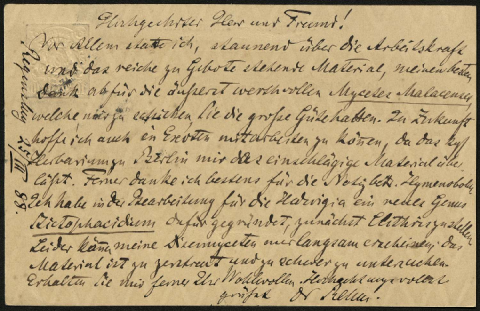 Hochgeehrter Herr und Freund!
Vor Allem statte ich, staunend über die Arbeitskraft
und das reiche zu Gebote stehende Material, meinen besten
Dank ab für die äusserst werthvollen Mycetes Malacenses,
welche mir zu schicken Sie die große Güte hatten. In Zukunft
hoffe ich auch in Exoten mitarbeiten zu können, da das kgl
Herbarium zu Berlin mir das einschlägige Material über
läßt. Ferner danke ich bestens für die Notiz betr. Hymenobolus
Ich habe in der Bearbeitung für die Hedwigia ein neues Genus
Stictophacidium dafür gegründet, zunächst zu stellen
Leider kann meine Discomyceten nur langsam erscheinen, das
Material ist zu zerstreut und zu schwer zu untersuchen
Erhalten Sie mir ferner Ihr Wohlwollen. Hochachtungsvollst
grüßt Dr Rehm.
25/III 88